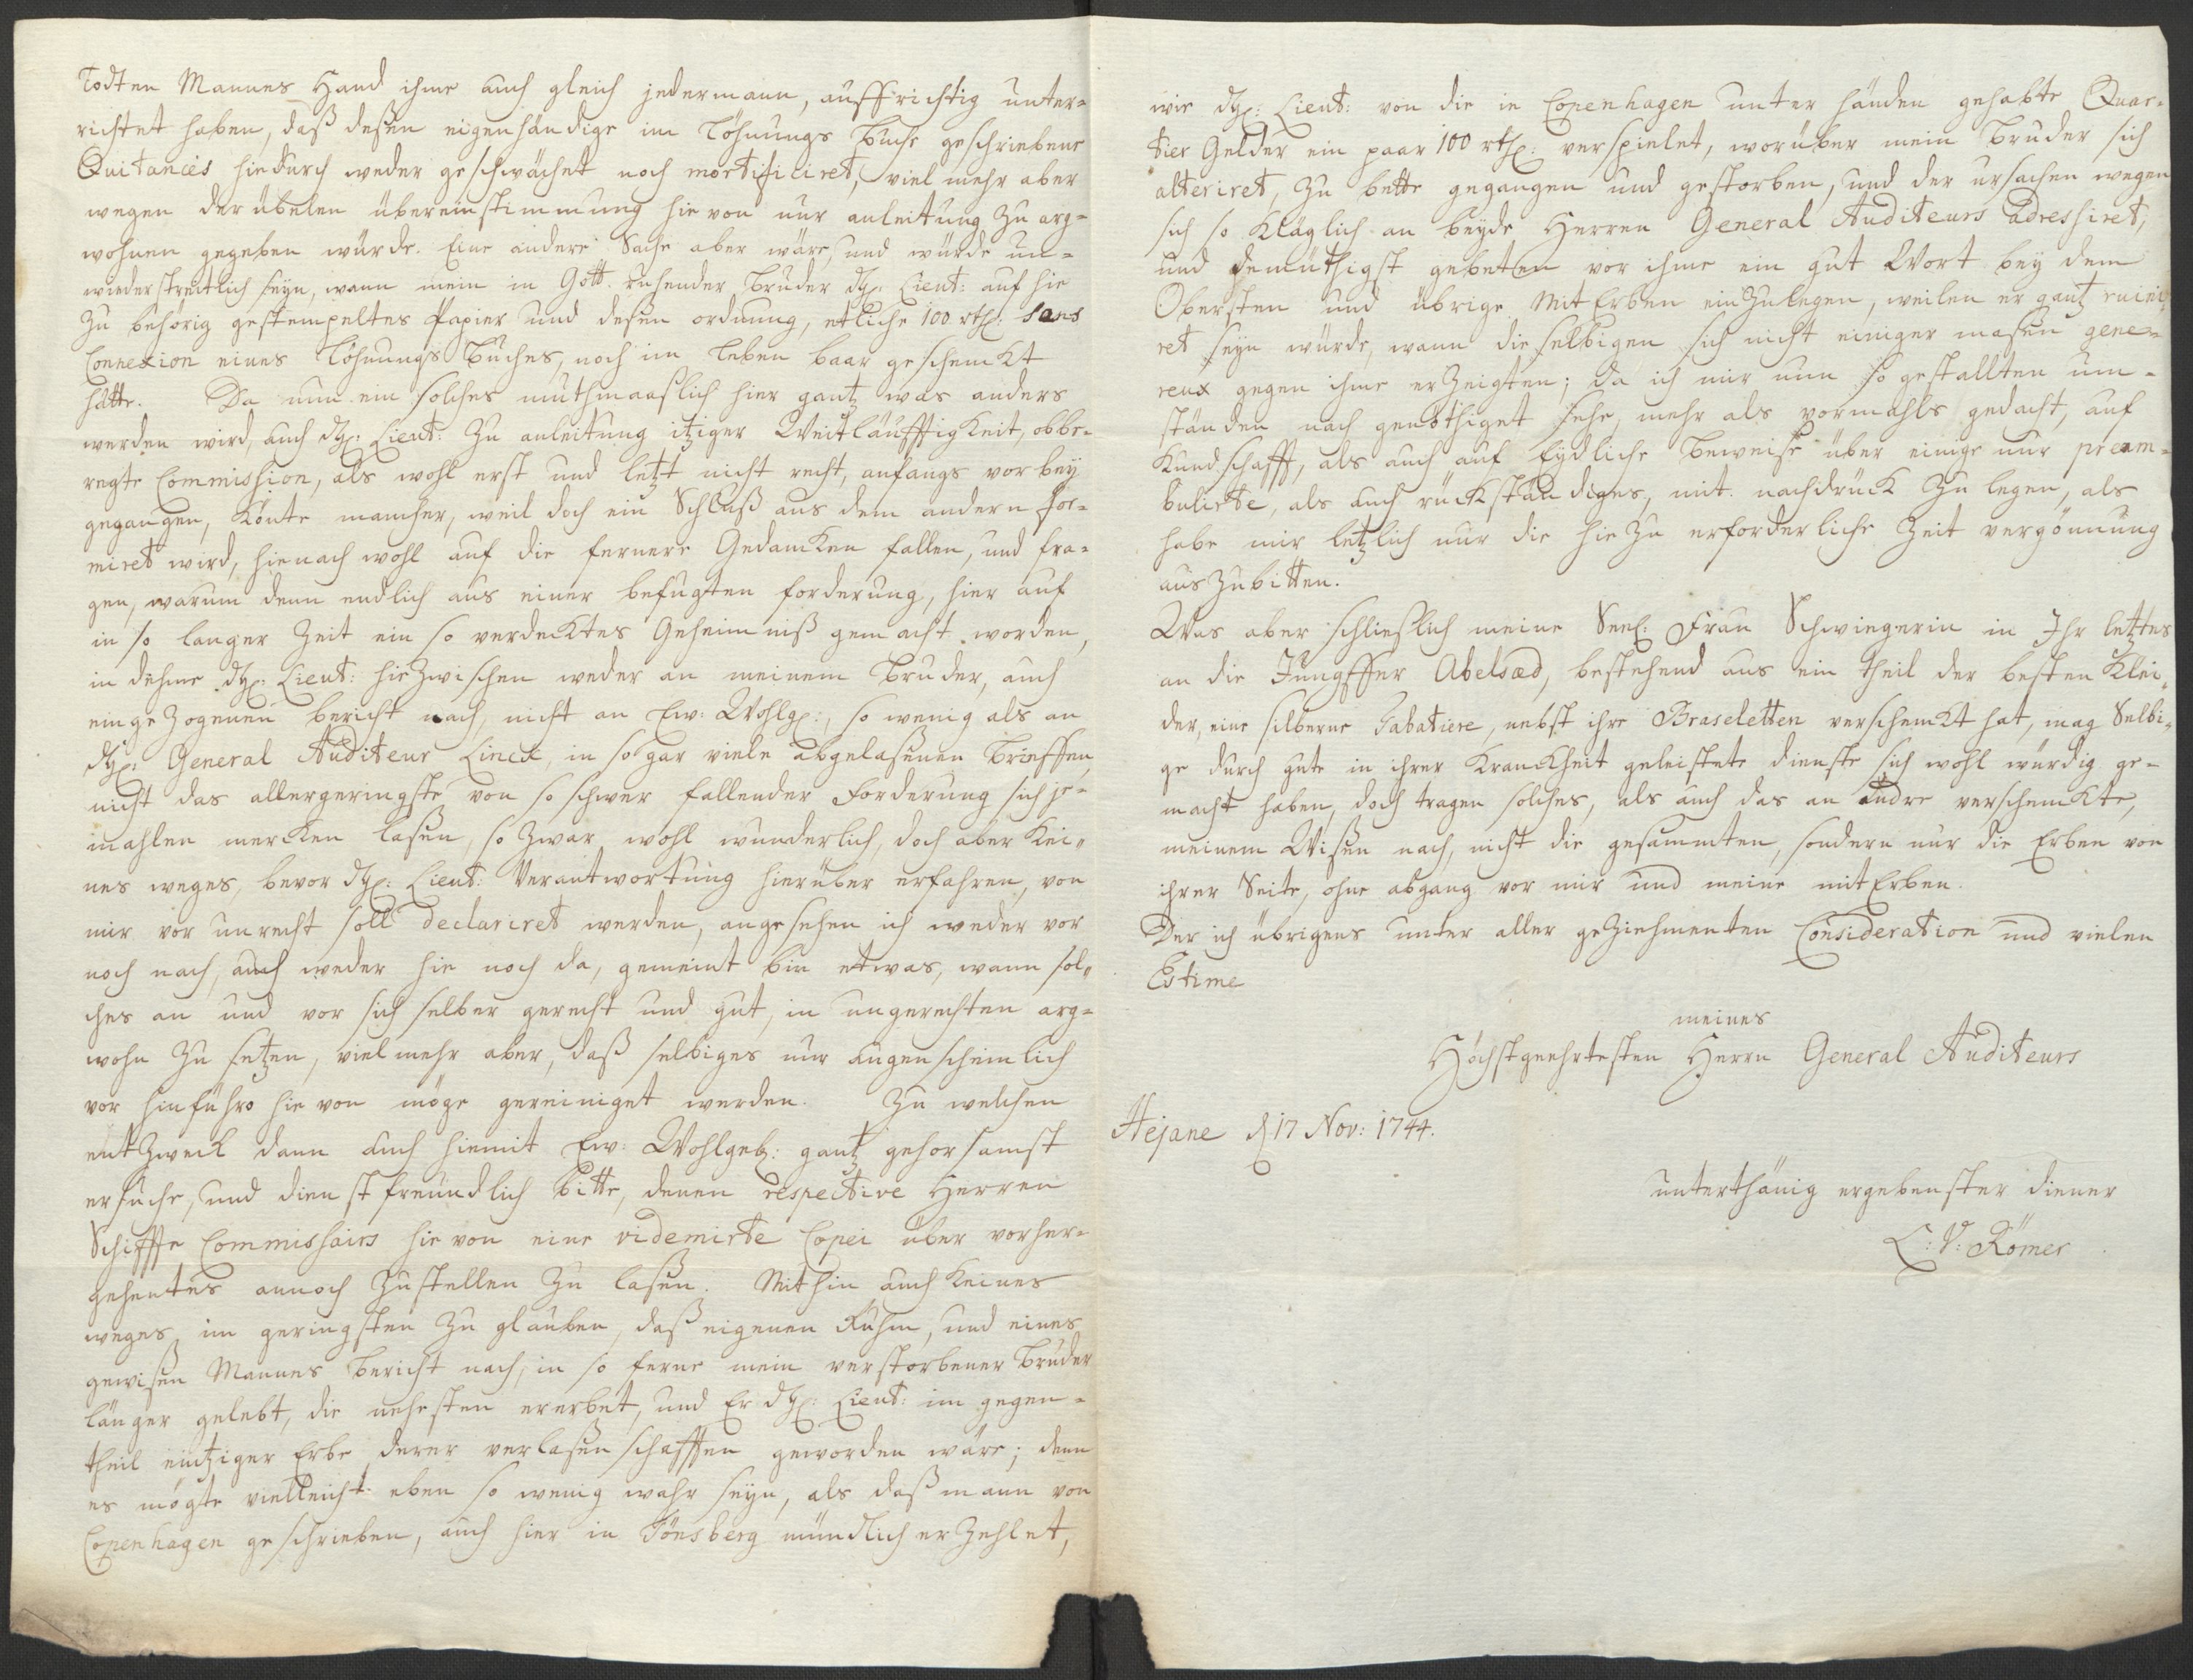 Todten Mannes Hand ihme auch gleich jedermann, auffrichtig unter-
richtet haben, daß deßen eigenhändige im Löhnungs Buche geschriebene
Quitances hiedurch weder geschwächet noch mortificiret, viel mehr aber
wegen der übelen übereinstimmung hievon nur anleitung Zu arg-
wohnen gegeben würde. Eine andere Sache aber wäre, und würde un-
wiederstreitlich seyn, wann mein in Gott ruhender Bruder Lieut: auf hie
Zu behörig gestempeltes Papier und deßen ordnung, etliche 100 rth: sans
Connexion eines Löhnungs Buches, noch im leben baar geschenckt
hätte. Da nun ein solches muthmaaslich hier gantz was anders
werden wird, auch Lieut: Zu anleitung itziger Weitläufftigkeit, obbe-
regte Commission, als wohl erst und letzt nicht recht, anfangs vorbey
gegangen, Könte mancher, weil doch ein Schluß aus dem andern for-
miret wird, hienach wohl auf die fernere Gedancken fallen, und fra-
gen, warum denn endlich aus einer befugten forderung, hier auf
in so langer Zeit ein so verdecktes Geheimniß gemacht worden,
in dehme Lieut: hieZwischen weder an meinem Bruder, auch
eingeZogenen bericht nach, nicht an Ew: Wohlg:, so wenig als an
General Auditeur Linck, in so gar viele abgelaßenen Brieffen,
nicht das allergeringste von so schwer fallender Forderung sich je-
mahlen mercken laßen, so Zwar wohl wunderlich, doch aber Kei-
nes weges, bevor Lieut: Verantwortung hierüber erfahren, von
mir vor unrecht soll declariret werden, angesehen ich weder vor
noch nach, auch weder hie noch da, gemeint bin etwas, wann sol-
ches an und vor sich selber gerecht und gut, in ungerechten arg-
wohn Zu setzen, viel mehr aber, daß selbiges nur augenscheinlich
vor hinführo hie von möge gereiniget werden. Zu welchen
entZweck dann auch hiemit Ew: Wohlgeb: gantz gehorsamst
ersuche, und dienstfreundlich bitte, denen respective Herren
Schiffte Commissairs hie von eine videmirte Copei über vorher-
gehentes annoch Zustellen Zu laßen. Mithin auch Keines
weges im geringsten Zu glauben, daß eigenen Ruhm, und eines
gewißen Mannes bericht nach, in so ferne mein verstorbener Bruder
länger gelebt, die nehesten ererbet, und Er Lieut: im gegen-
theil eintziger Erbe derer verlaßenschafften geworden wäre; denn
es mögte vielleicht eben so wenig wahr seyn, als daß mann von
Copenhagen geschrieben, auch hier in Tönsberg mündlich erZehlet,
wie Lieut: von die in Copenhagen unter händen gehabte Quar-
tier Gelder ein paar 100 rth: verspielet, worüber mein Bruder sich
alteriret, Zu bette gegangen und gestorben, und der ursachen wegen
sich so Kläglich an beyde Herren General Auditeurs adressiret,
und demüthigst gebeten vor ihme ein gut Wort bey dem
Obersten und übrige Mit Erben einZulegen, weilen er gantz ruini-
ret seyn würde, wann die selbigen sich nicht einiger maßen gene-
reux gegen ihme erZeigten; da ich mir nun so gestallten um-
ständen nach genöthiget sehe, mehr als vormahls gedacht, auf
Kundschafft, als auch auf Eydliche Beweise über einige nur pream-
bulirte, als auch rückständiges, mit nachdruck Zu legen, als
habe mir letzlich nur die hieZu erforderliche Zeit vergönnung
ausZubitten.
Was aber schließlich meine Seel: Frau Schwiegerin in Ihr letztes
an die Jungffer Abelsæd, bestehend aus ein theil der besten Klei-
der, eine silberne Tabatiere, nebst ihre Braseletten verschenckt hat, mag Selbi-
ge durch gute in ihrer Kranckheit geleistete dienste sich wohl würdig ge-
macht haben, doch tragen solches, als auch das an andre verschenckte,
meinem Wißen nach, nicht die gesammten, sondern nur die Erben von
ihrer Seite, ohne abgang vor mir und meine mit Erben.
Der ich übrigens unter aller geZiehmenten Consideration und vielen
Estime
meines
Höchstgeehrtesten Herrn General Auditeurs
Hejane d 17 Nov: 1744.
unterthänig ergebenster diener
C: V: Römer